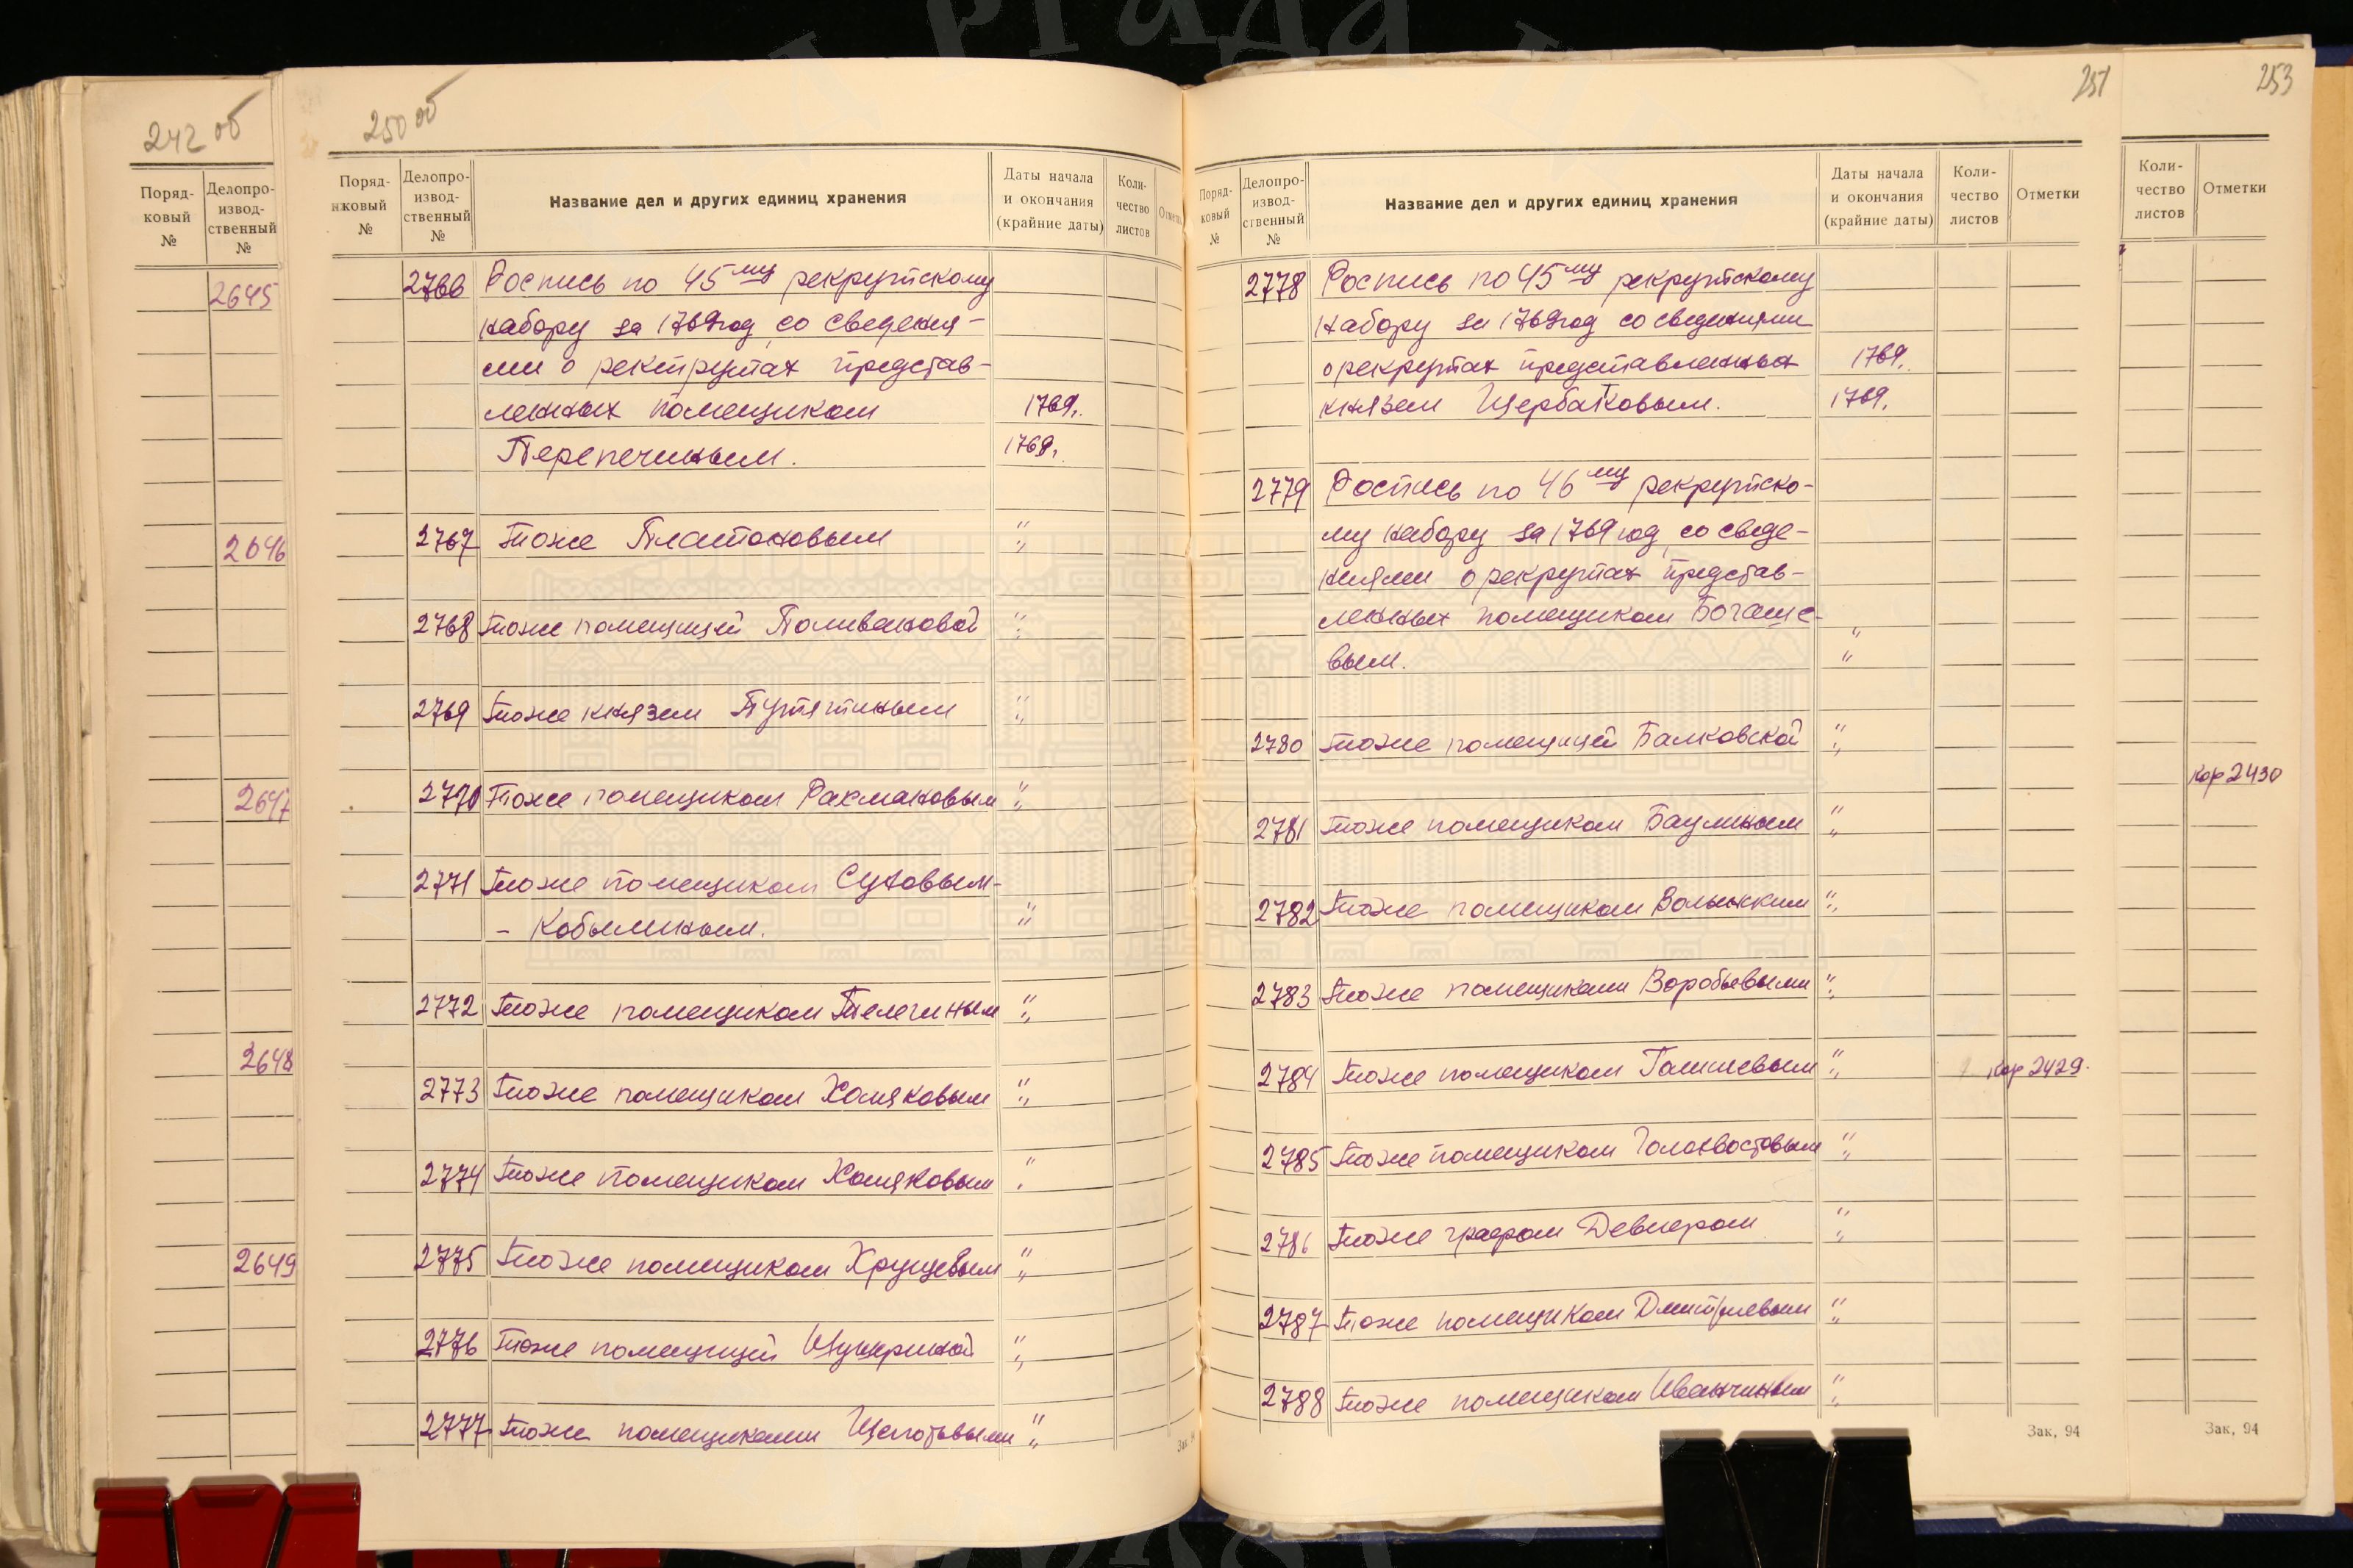 242 об
Поряд-
ковый
№
Делопро-
извод-
ственный
№
2645
2646
2647
2648
2649
250 об
Поряд-
ковый
№
Делопро-
извод-
ственный
№
Название дел и других единиц хранения
Даты начала
и окончания
(крайние даты)
Коли-
чество
листов
2766 Роспись по 45му рекрутскому
набору за 1769 год, со сведени-
ми о рекрутах представ-
ленных помещиком 1769.
Перепечиным. 1769.
2767 Тоже Платоновым "
2768 Тоже помещицей Поливановой "
2769 Тоже князем Путятиным "
2770 Тоже помещиком Рахмановым "
2771 Тоже помещиком Суховым-
- Кобылиным. "
2772 Тоже помещиком Телегиным "
2773 Тоже помещиком Хомяковым "
2774 Тоже помещиком Хомяковым "
2775 Тоже помещиком Хрущевым "
2776 Тоже помещицей
2777 Тоже помещиками Щепотьевыми "
251
Поряд-
ковый
№
Делопро-
извод-
ственный
№
Название дел и других единиц хранения
Даты начала
и окончания
(крайние даты)
Коли-
чество
листов
Отметки
2778 Роспись по 45му рекрутскому
набору за 1769 год со сведениями
о рекрутах представленных 1769.
князем Щербатовым. 1769.
2779 Роспись по 46му рекрутско-
му набору за 1769 год, со сведе-
ниями о рекрутах представ-
ленных помещиком Богаше-
вым. "
2780 Тоже помещицей Балковской "
2781 Тоже помещиком Баулиным "
2782 Тоже помещиком Волынским "
2783 Тоже помещиками Воробьевыми "
2784 Тоже помещиком " Кор 2429.
2785 Тоже помещиком Голохвостовым "
2786 Тоже графом Девиером "
2787 Тоже помещиком Дмитриевым "
2788 Тоже помещиком Иванчиным "
Зак, 94
253
Коли-
чество
листов
Отметки
Кор 2430
Зак, 94